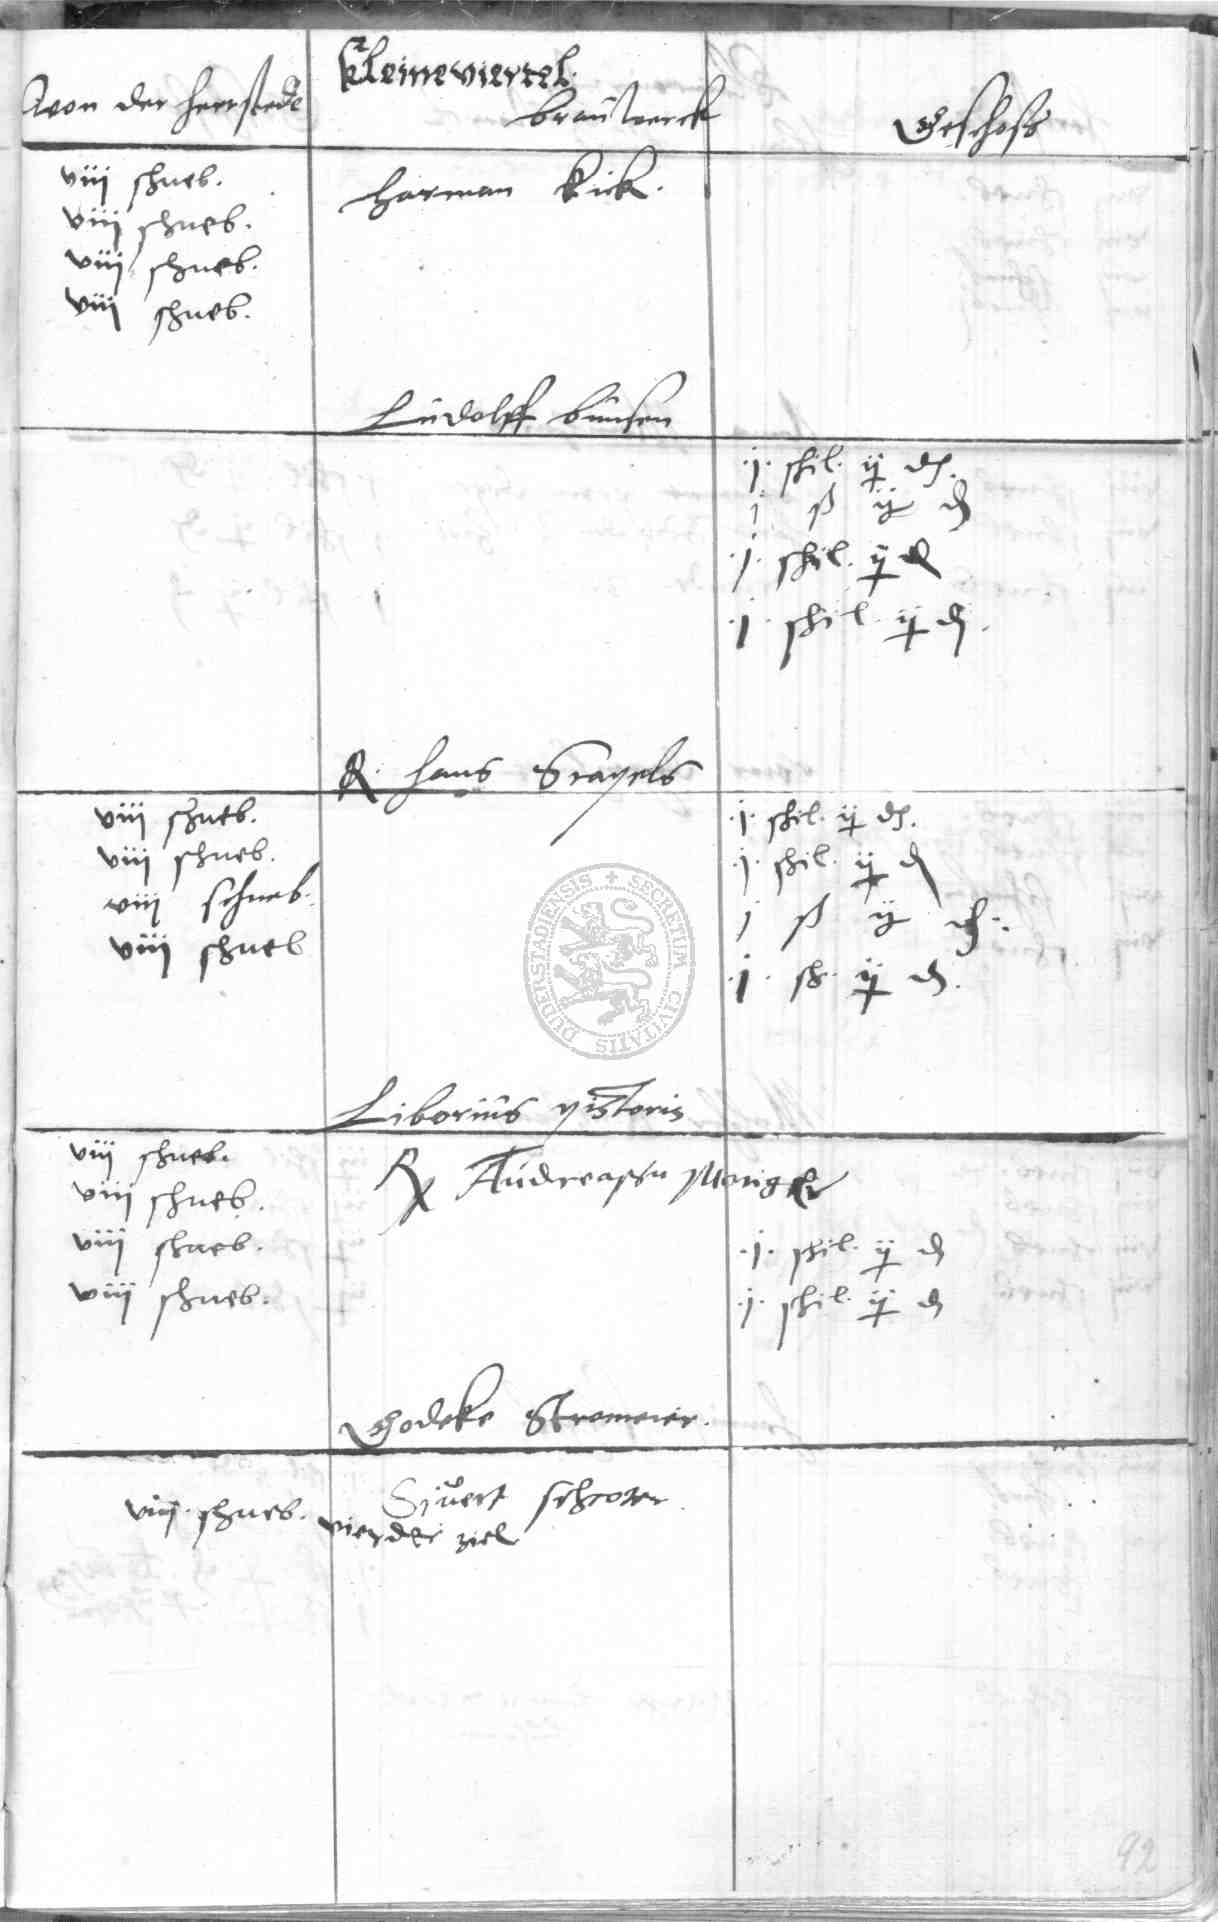 Von der heerstede
Kleineviertel.
brauwerck
Geschoß
viij schneb.
viij schneb.
viij schneb.
viij schneb.
harman Kick.
Ludolff bunsen
.j. schil. ij d.
j ß ij d
.j. schil. ij d
.j. schil. ij d.
hans
viij schneb.
viij schneb.
viij schneb.
viij schneb
.j. schil. ij d.
.j. schil. ij d
j ß ij d.
.j. sch. ij d.
SECRETUM CIVITATIS DUDERSTADIENSIS
Liborius pistoris
viij schneb.
viij schneb.
viij schneb.
viij schneb.
Andreassen
.j. schil. ij d
.j. schil. ij d
Godeke Stromeier.
viij schneb.
Sivert schroter
vierder ziel
92